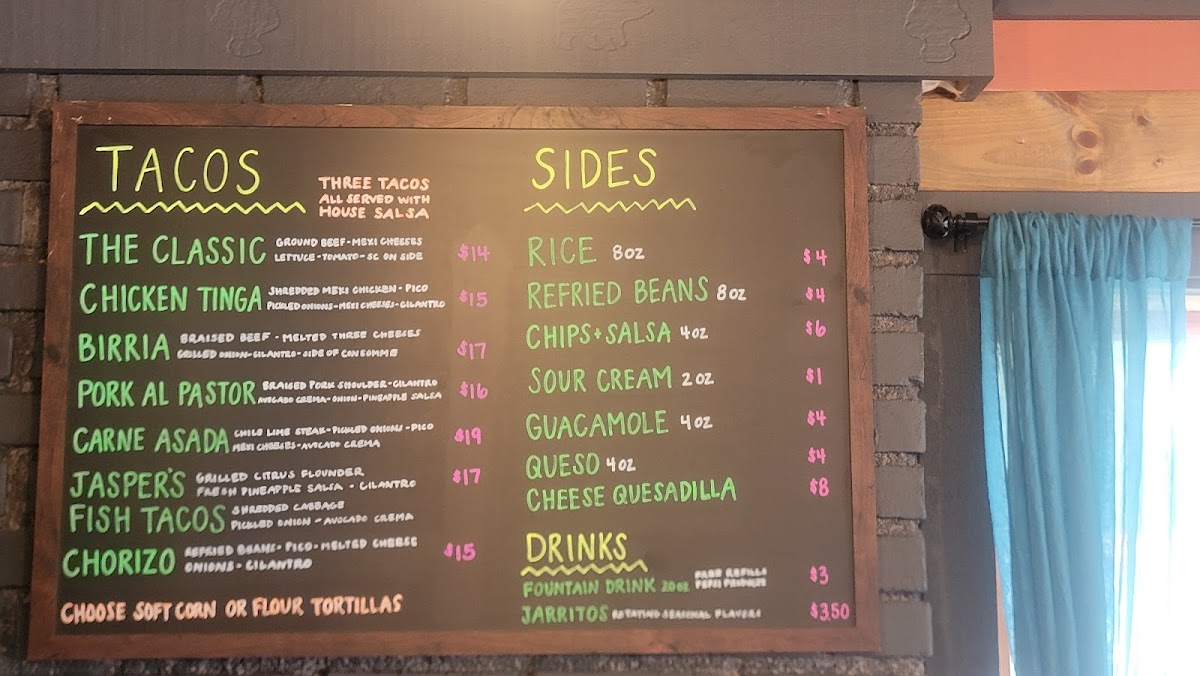 TACOS
THREE TACOS
ALL SERVED WITH
HOUSE SALSA
THE CLASSIC GROUND BEEF - MEXI CHEESES $14
LETTUCE - TOMATO - SC ON SIDE
CHICKEN TINGA SHREDDED MEXI CHICKEN - PICO $15
PICKLED ONIONS - MEXI CHEESES - CILANTRO
BIRRIA BRAISED BEEF - MELTED THREE CHEESES $17
GRILLED ONION - CILANTRO - SIDE OF CONSOMME
PORK AL PASTOR BRAISED PORK SHOULDER - CILANTRO $16
AVOCADO CREMA - ONION - PINEAPPLE SALSA
CARNE ASADA CHILE LIME STEAK - PICKLED ONIONS - PICO $19
MEXI CHEESES - AVOCADO CREMA
JASPER'S GRILLED CITRUS FLOUNDER $17
FRESH PINEAPPLE SALSA - CILANTRO
FISH TACOS SHREDDED CABBAGE
PICKLED ONION - AVOCADO CREMA
CHORIZO REFRIED BEANS - PICO - MELTED CHEESE $15
ONIONS - CILANTRO
CHOOSE SOFT CORN OR FLOUR TORTILLAS
SIDES
RICE 8OZ $4
REFRIED BEANS 8OZ $4
CHIPS + SALSA 4OZ $6
SOUR CREAM 2OZ $1
GUACAMOLE 4OZ $4
QUESO 4OZ $4
CHEESE QUESADILLA $8
DRINKS
FOUNTAIN DRINK 20OZ FREE REFILLS $3
PEPSI PRODUCTS
JARRITOS ROTATING SEASONAL FLAVORS $3.50